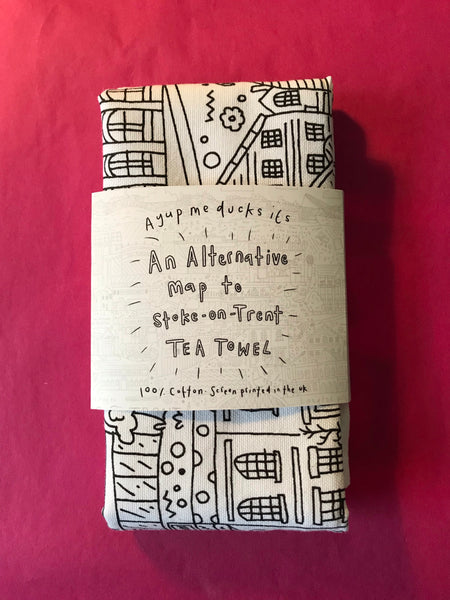 Ayup me ducks its
An Alternative
map to
Stoke-on-Trent
TEA TOWEL
100% Cotton. Screen printed in the UK